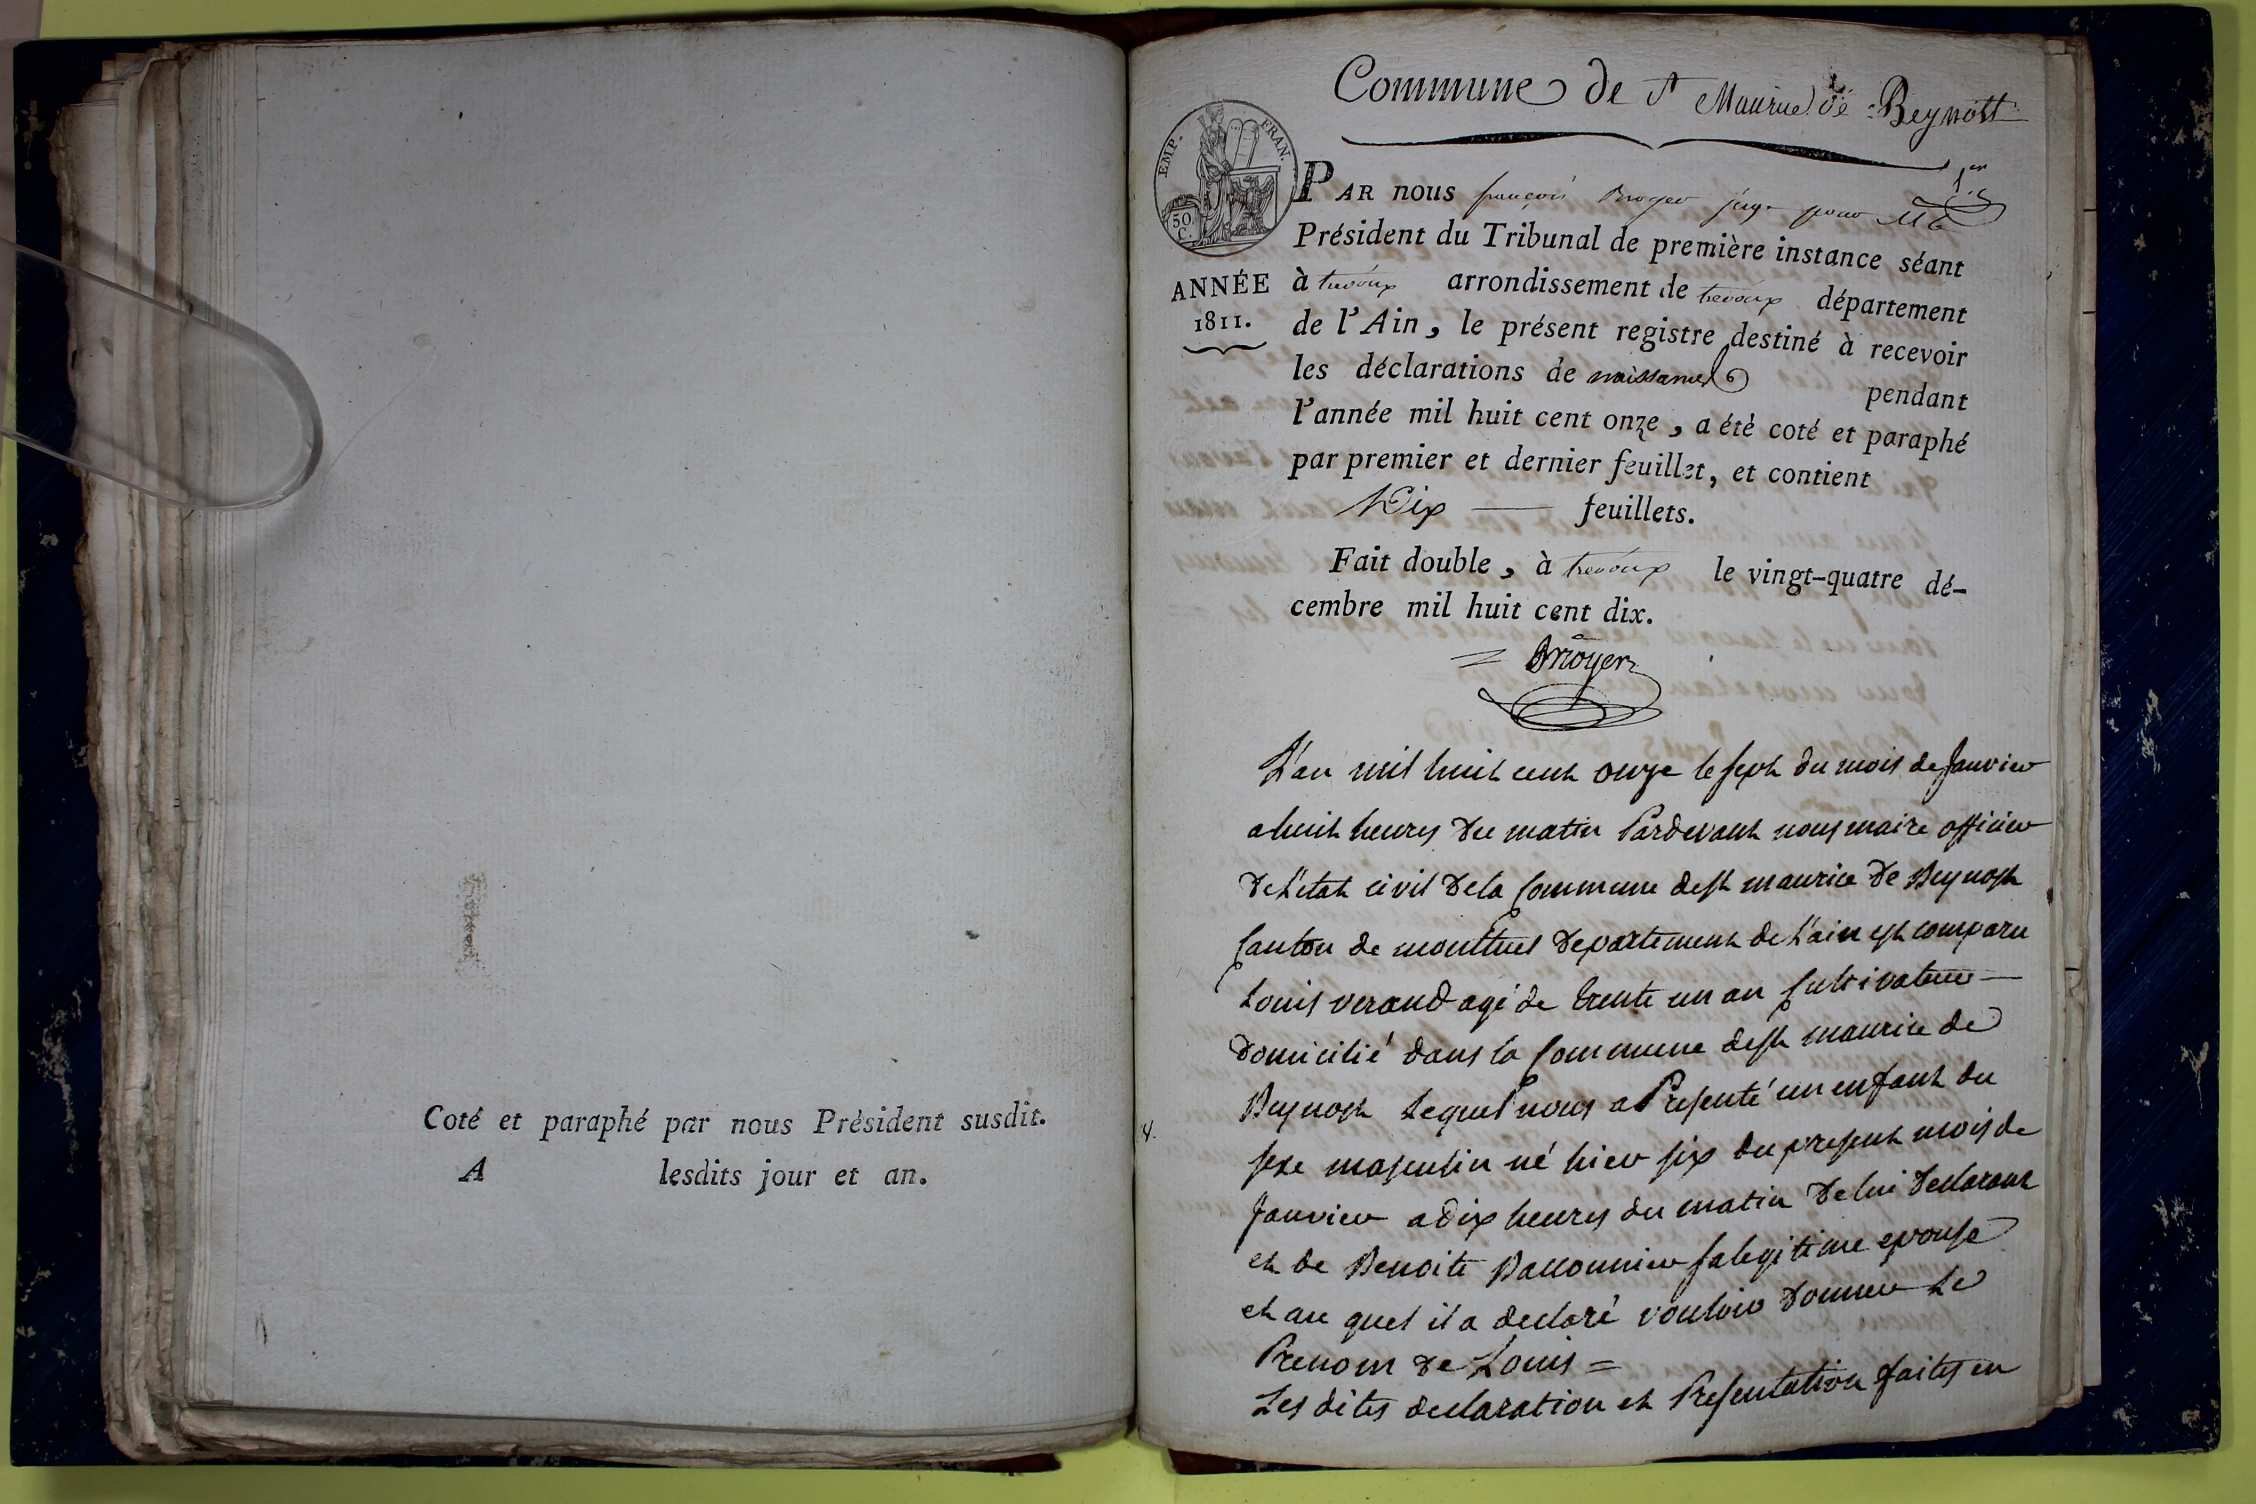 Coté et paraphé par nous Président susdit.
A lesdits jour et an.
Commune de St Maurice de Beynost
EMP. FRAN.
50 C.
1er
PAR nous françois Broyer juge pour Mr le
Président du Tribunal de première instance séant
ANNÉE
1811.
à trévoux arrondissement de trévoux département
de l'Ain, le présent registre destiné à recevoir
les déclarations de naissances pendant
l'année mil huit cent onze, a été coté et paraphé
par premier et dernier feuillet, et contient
Dix — feuillets.
Fait double, à trevoux le vingt-quatre dé-
cembre mil huit cent dix.
Broyer
L'an mil huit cent onze le sept du mois de Janvier
a huit heures du matin Pardevant nous maire officier
de L'etat civil de la Commune de st maurice de Beynost
Canton de montluel Departement de L'ain est comparu
Louis verand agé de trente un an Cultivateur —
domicilié dans la Commune de st maurice de
Beynost Lequel nous a Presenté un enfant du
sexe masculin né hier six du present mois de
Janvier a dix heures du matin de lui declarant
et de Benoite Ballonnier sa legitime epouse
et au quel il a declaré vouloir donner Le
Prenom de Louis =
Les dites declaration et Presentation faites en